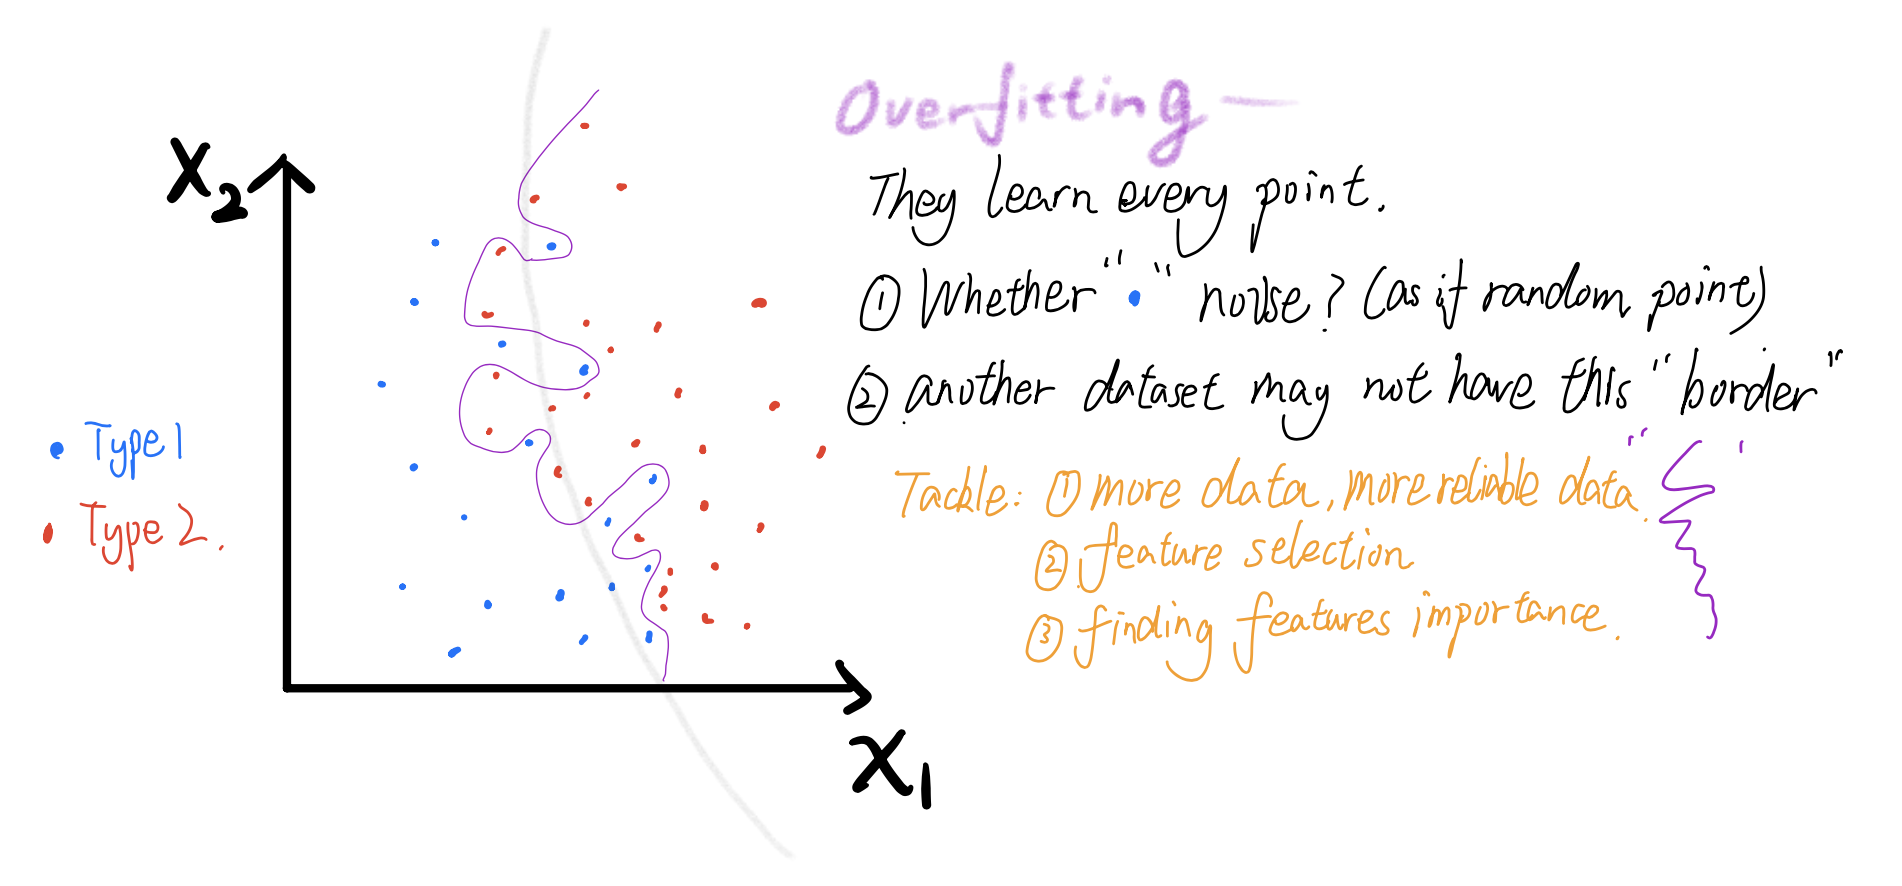 Overfitting —
They learn every point.
① Whether " " noise? (as if random point)
② another dataset may not have this "border"
Tackle: ① more data, more reliable data.
② feature selection.
③ finding features importance.
X₂
• Type 1
• Type 2.
X₁